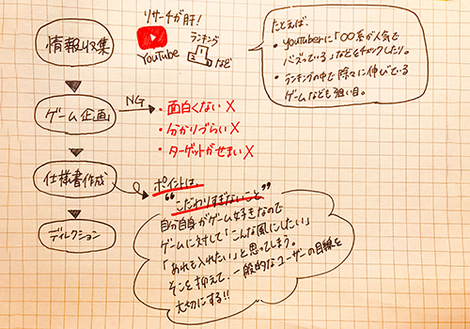 情報収集
リサーチが肝!
YouTube
ランキング
など
たとえば
・YouTuberに「〇〇系が人気で
バズっている」などをチェックしたり。
・ランキングの中で徐々に伸びている
ゲームなども狙い目。
ゲーム企画
NG
・面白くない ×
・分かりづらい ×
・ターゲットがせまい ×
仕様書作成
ポイントは、
"こだわりすぎないこと"
自分自身がゲーム好きなので
ゲームに対して「こんな風にしたい」
「あれも入れたい」と思ってしまう。
そこを抑えて、一般的なユーザーの目線を
大切にする!!
ディレクション